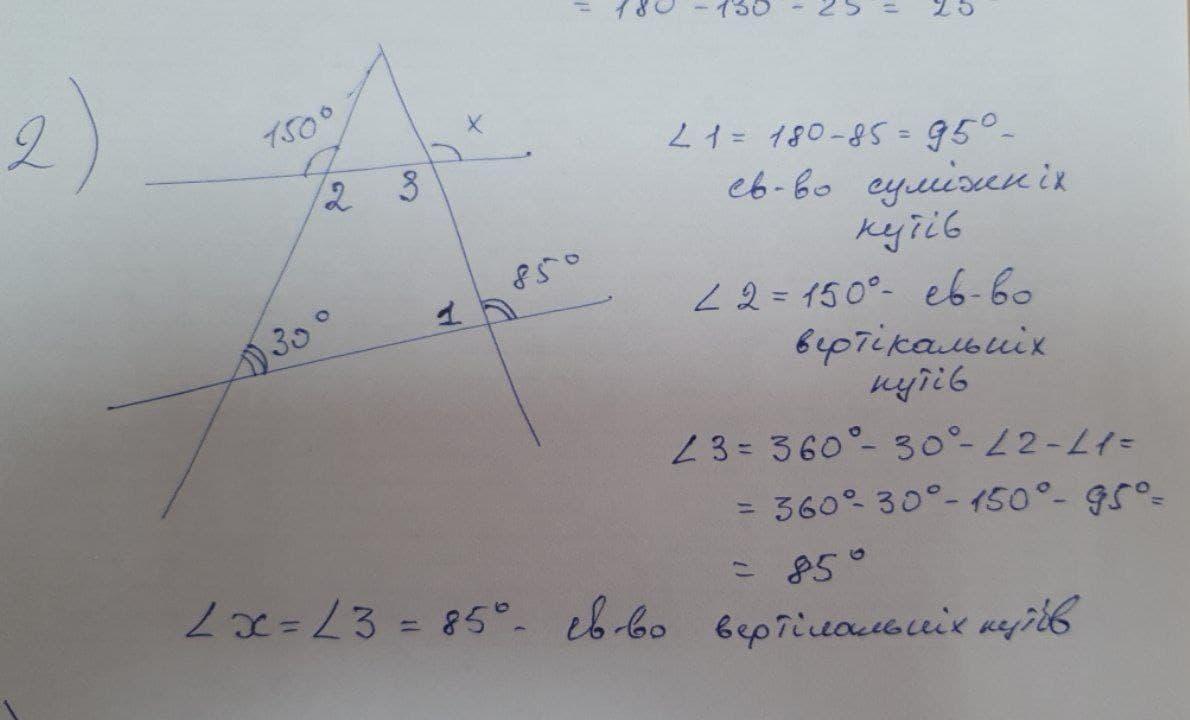 = 180 - 130 - 25 = 25
2)
150°
x
2
3
85°
1
30°
∠1 = 180-85 = 95° -
св-во суміжніх
кутів
∠2 = 150° - св-во
вертікальніх
кутів
∠3 = 360° - 30° - ∠2 - ∠1 =
= 360° - 30° - 150° - 95° =
= 85°
∠x = ∠3 = 85° - св-во вертікальніх кутів